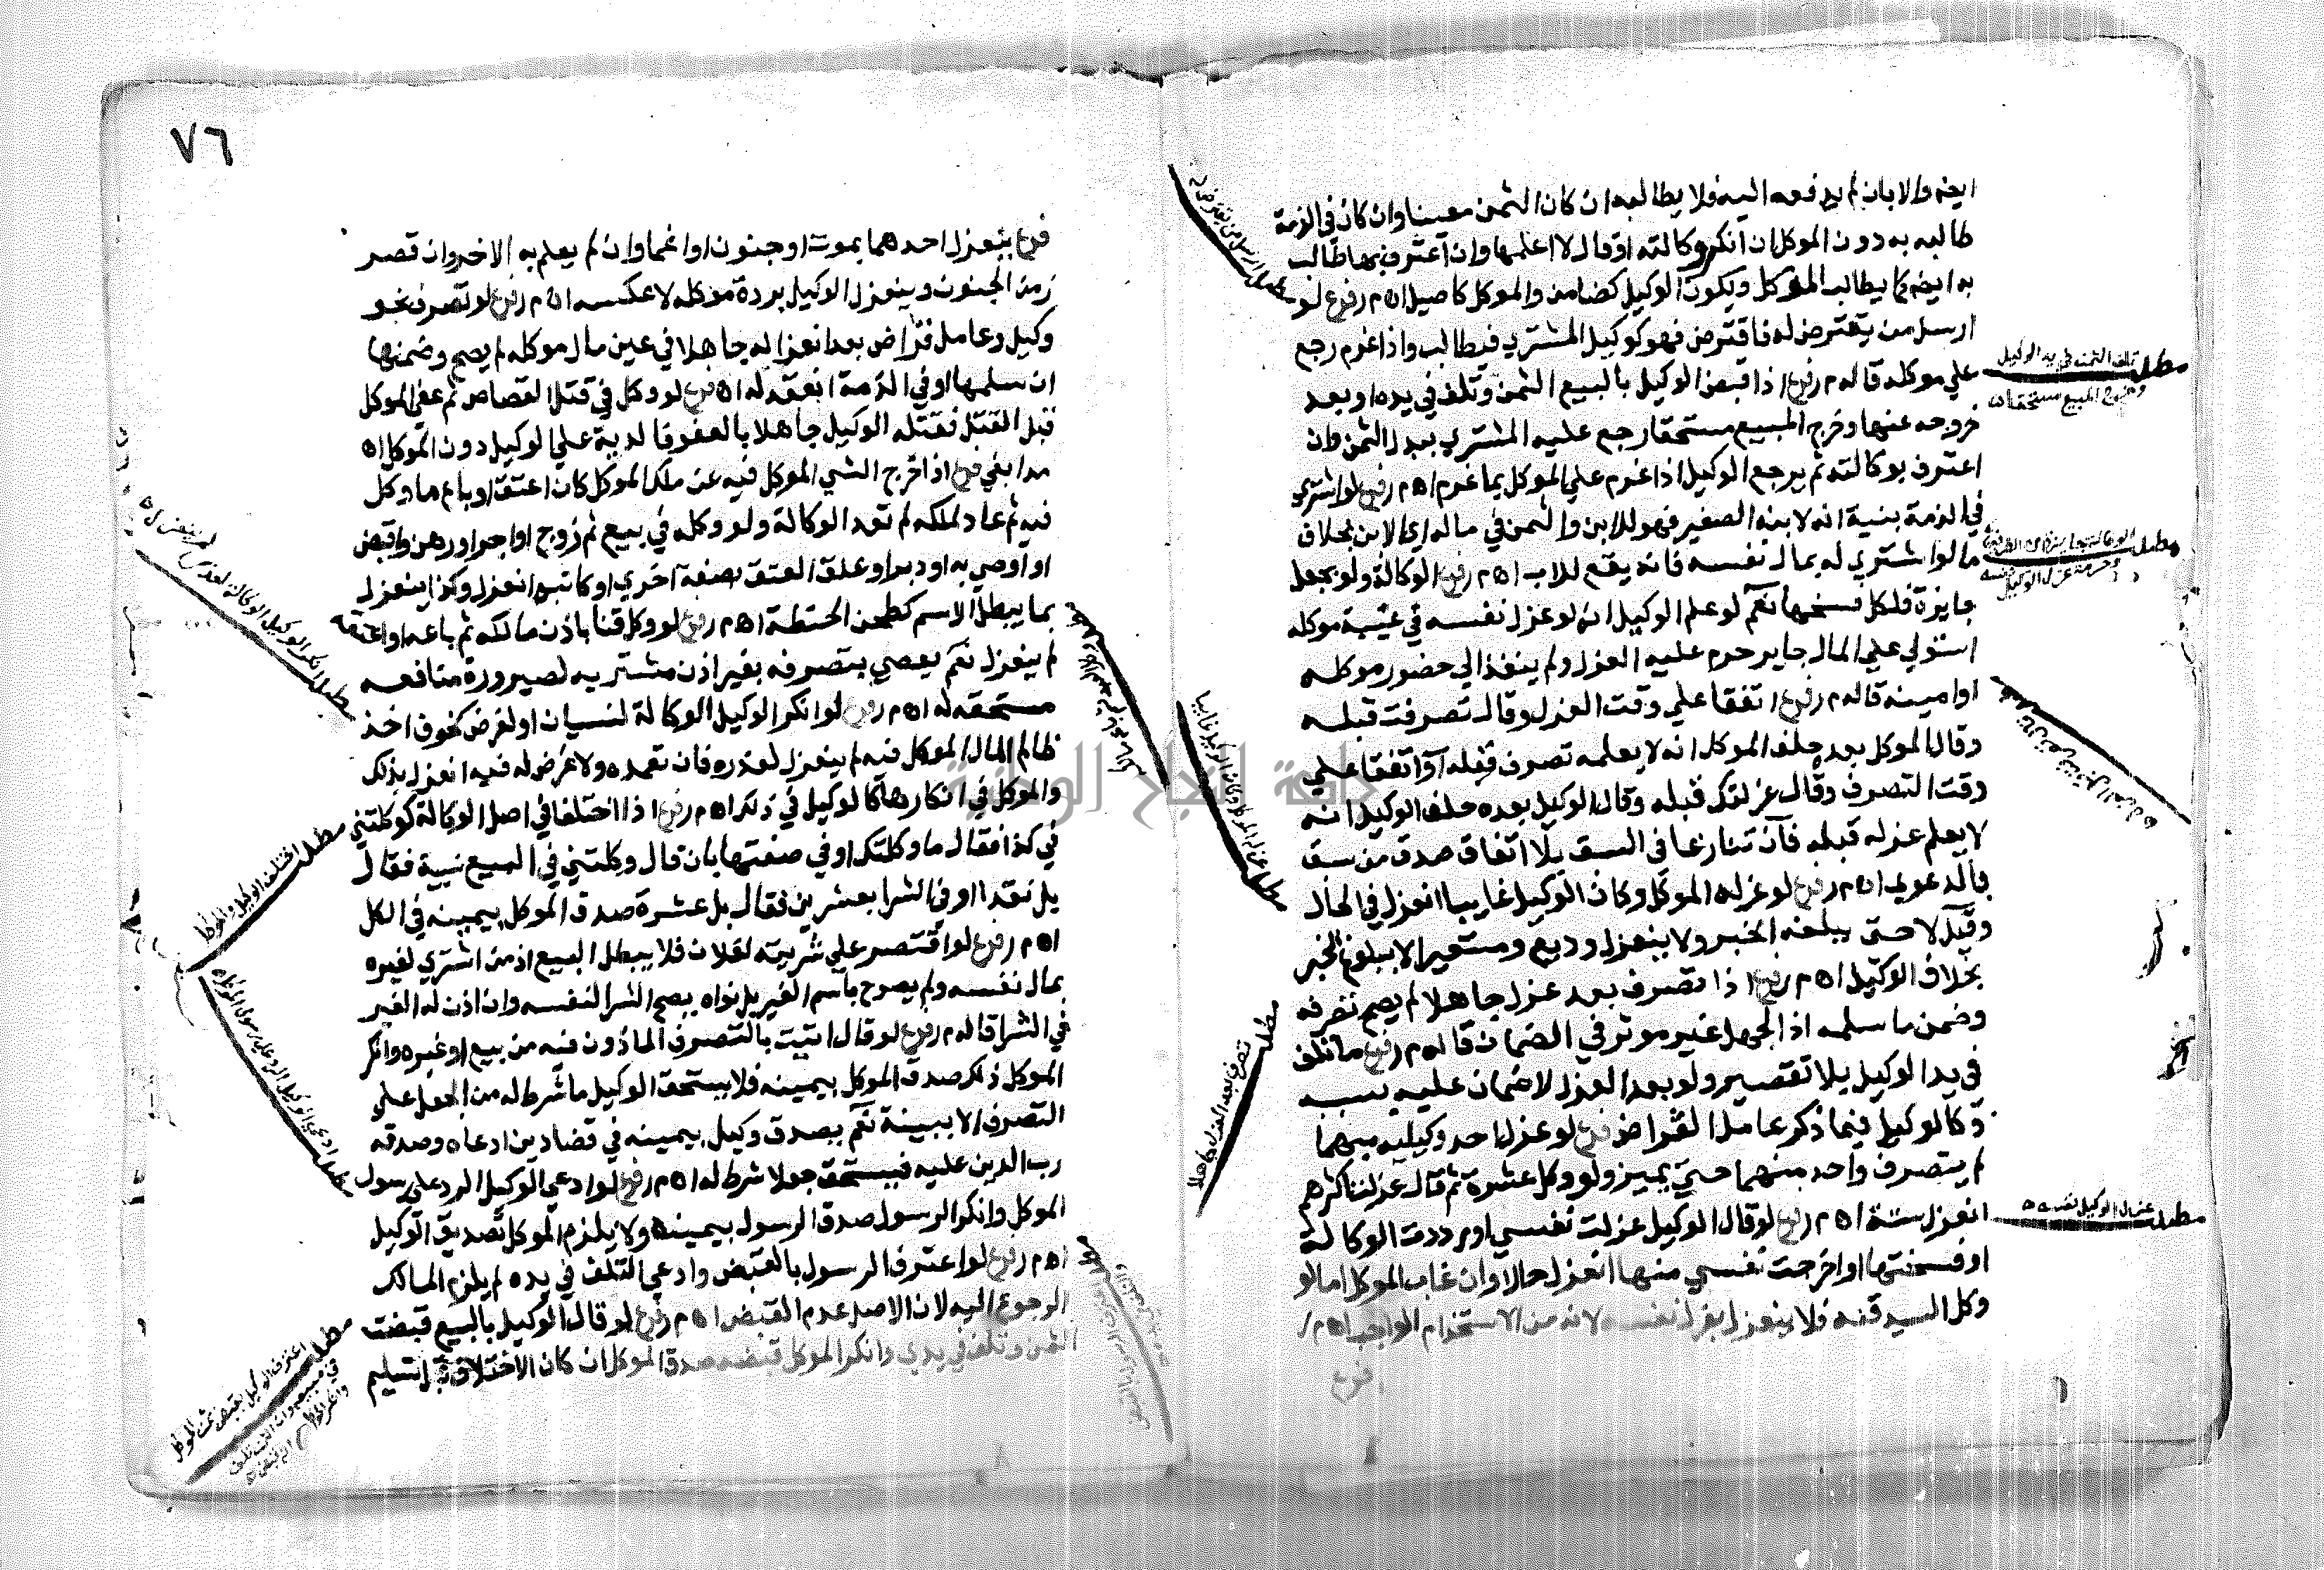 ايضا والا بان لم يدفعه اليه فلا يطالبه ان كان الثمن معينا وان كان في الذمة
طالبه به دون الموكل ان انكر وكالته او قال لا اعلمها وان اعترف بها طالب
به ايضا كما يطالب الموكل ويكون الوكيل كضامن والموكل كاصيل اه م ر فرع لو
ارسل من يقترض له فاقترض فهو كوكيل المشتري فيطالب واذا غرم رجع
علي موكله قاله م ر فرع اذا قبض الوكيل بالبيع الثمن وتلف في يده او بعد
خروجه عنها وخرج المبيع مستحقا رجع عليه المشتري ببدل الثمن وان
اعترف بوكالته ثم يرجع الوكيل اذا غرم علي الموكل بما غرم اه م ر فرع لو اشتري
في الذمة بنية انه لابنه الصغير فهو للابن والثمن في ماله اي الابن بخلاف
ما لو اشتري له بمال نفسه فانه يقع للاب اه م ر فرع الوكالة ولو بجعل
جايزة فلكل فسخها نعم لو علم الوكيل انه لو عزل نفسه في غيبة موكله
استولي علي المال جاير حرم عليه العزل ولم ينفذ الي حضور موكله
او امينه قاله م ر فرع اتفقا علي وقت العزل وقال تصرفت قبله
وقال الموكل بعده حلف الموكل انه لا يعلمه تصرف قبله او اتفقا علي
وقت التصرف وقال عزلتك قبله وقال الوكيل بعده حلف الوكيل انه
لا يعلم عزله قبله فان تنازعا في السبق بلا اتفاق صدق من سبق
بالدعوي اه م ر فرع لو عزله الموكل وكان الوكيل غايبا انعزل في الحال
وقيل لا حتى يبلغه الخبر ولا ينعزل وديع ومستعير الا ببلوغ الخبر
بخلاف الوكيل اه م ر فرع اذا تصرف بعد عزل جاهلا لم يصح تصرفه
وضمن ما سلمه اذ الجهل غير موثر في الضمان قاله م ر فرع ما تلف
في يد الوكيل بلا تقصير ولو بعد العزل لا ضمان عليه بسببه
وكالوكيل فيما ذكر عامل القراض فرع لو عزل احد وكيليه مبهما
لم يتصرف واحد منهما حتي يميز ولو وكل عشرة ثم قال عزلت اكثرهم
انعزل ستة اه م ر فرع لو قال الوكيل عزلت نفسي او رددت الوكالة
او فسختها او اخرجت نفسي منها انعزل حالا وان غاب الموكل اما لو
وكل السيد قنه فلا ينعزل بعزل نفسه لانه من الاستخدام الواجب اه م ر
فرع
مطلب تلف الثمن في يد الوكيل
وخروج المبيع مستحقا
مطلب عزل الوكيل نفسه
مطلب تصرف بعد العزل جاهلا
٧٦
فرع ينعزل احدهما بموت او جنون او اغما وان لم يعلم به الاخر وان قصر
زمن الجنون وينعزل الوكيل بردة موكله لا عكسه اه م ر فرع لو تصرف نحو
وكيل وعامل قراض بعد انعزاله جاهلا في عين مال موكله لم يصح وضمنها
ان سلمها او في الذمة انعقد له اه فرع لو وكل في قتل القصاص ثم عفي الموكل
قبل القتل فقتله الوكيل جاهلا بالعفو فالدية علي الوكيل دون الموكل اه
مدابغي فرع اذا خرج الشي الموكل فيه عن ملك الموكل كان اعتق او باع ما وكل
فيه ثم عاد لملكه لم تعد الوكالة ولو وكله في بيع ثم زوج او اجر او رهن واقبض
او اوصي به او دبر او علق العتق بصفة اخري او كاتب انعزل وكذا ينعزل
بما يبطل الاسم كطحن الحنطة اه م ر فرع لو وكل قنا باذن مالكه ثم باعه او اعتقه
لم ينعزل نعم يعصي بتصرفه بغير اذن مشتريه لصيرورة منافعه
مستحقه له اه م ر فرع لو انكر الوكيل الوكالة لنسيان او لغرض كخوف اخذ
ظالم المال الموكل فيه لم ينعزل لعذره فان تعمده ولا غرض له فيه انعزل بذلك
والموكل في انكارها كالوكيل في ذلك اه م ر فرع اذا اختلفا في اصل الوكالة كوكلتني
في كذا فقال ما وكلتك او في صفتها بان قال وكلتني في البيع نسية فقال
بل نقدا او في الشرا بعشرين فقال بل عشرة صدق الموكل بيمينه في الكل
اه م ر فرع لو اقتصر علي شريته لفلان فلا يبطل البيع اذ من اشتري لغيره
بمال نفسه ولم يصرح باسم الغير بل نواه يصح الشرا لنفسه وان اذن له الغير
في الشرا قاله م ر فرع لو قال اتيت بالتصرف الماذون فيه من بيع او غيره وانكر
الموكل ذلك صدق الموكل بيمينه فلا يستحق الوكيل ما شرط له من الجعل علي
التصرف الا ببينة نعم يصدق وكيل بيمينه في قضا دين ادعاه وصدقه
رب الدين عليه فيستحق جعلا شرط له اه م ر فرع لو ادعي الوكيل الرد علي رسول
الموكل وانكر الرسول صدق الرسول بيمينه ولا يلزم الموكل تصديق الوكيل
اه م ر فرع لو اعترف الرسول بالقبض وادعي التلف في يده لم يلزم المالك
الرجوع اليه لان الاصل عدم القبض اه م ر فرع لو قال الوكيل بالبيع قبضت
الثمن وتلف في يدي وانكر الموكل قبضه صدق الموكل ان كان الاختلاف قبل تسليم
مطلب انكر الوكيل الوكالة لعذر لم ينعزل
مطلب اختلف الوكيل والموكل
مطلب ادعي الوكيل الرد علي رسول الموكل
مطلب اعترف الوكيل بقبض ثمن الموكل
جامعة النجاح الوطنية